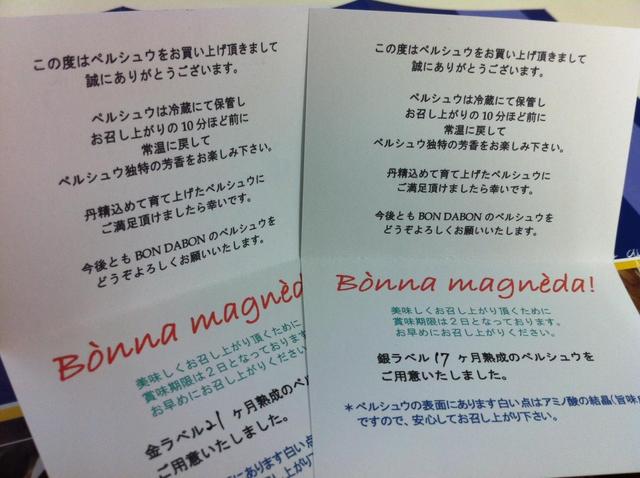 この度はペルシュウをお買い上げ頂きまして
誠にありがとうございます。
ペルシュウは冷蔵にて保管し
お召し上がりの10分ほど前に
常温に戻して
ペルシュウ独特の芳香をお楽しみ下さい。
丹精込めて育て上げたペルシュウに
ご満足頂けましたら幸いです。
今後ともBON DABONのペルシュウを
どうぞよろしくお願いいたします。
Bònna magnèd
美味しくお召し上がり頂くために
賞味期限は2日となっております。
お早めにお召し上がりください
金ラベル21ヶ月熟成のペル
ご用意いたしました。
にあります白い点
お召し上がり下
この度はペルシュウをお買い上げ頂きまして
誠にありがとうございます。
ペルシュウは冷蔵にて保管し
お召し上がりの10分ほど前に
常温に戻して
ペルシュウ独特の芳香をお楽しみ下さい。
丹精込めて育て上げたペルシュウに
ご満足頂けましたら幸いです。
今後ともBON DABONのペルシュウを
どうぞよろしくお願いいたします。
Bònna magnèda!
美味しくお召し上がり頂くために
賞味期限は2日となっております。
お早めにお召し上がりください。
銀ラベル17ヶ月熟成のペルシュウを
ご用意いたしました。
＊ペルシュウの表面にあります白い点はアミノ酸の結晶(旨味
ですので、安心してお召し上がり下さい。